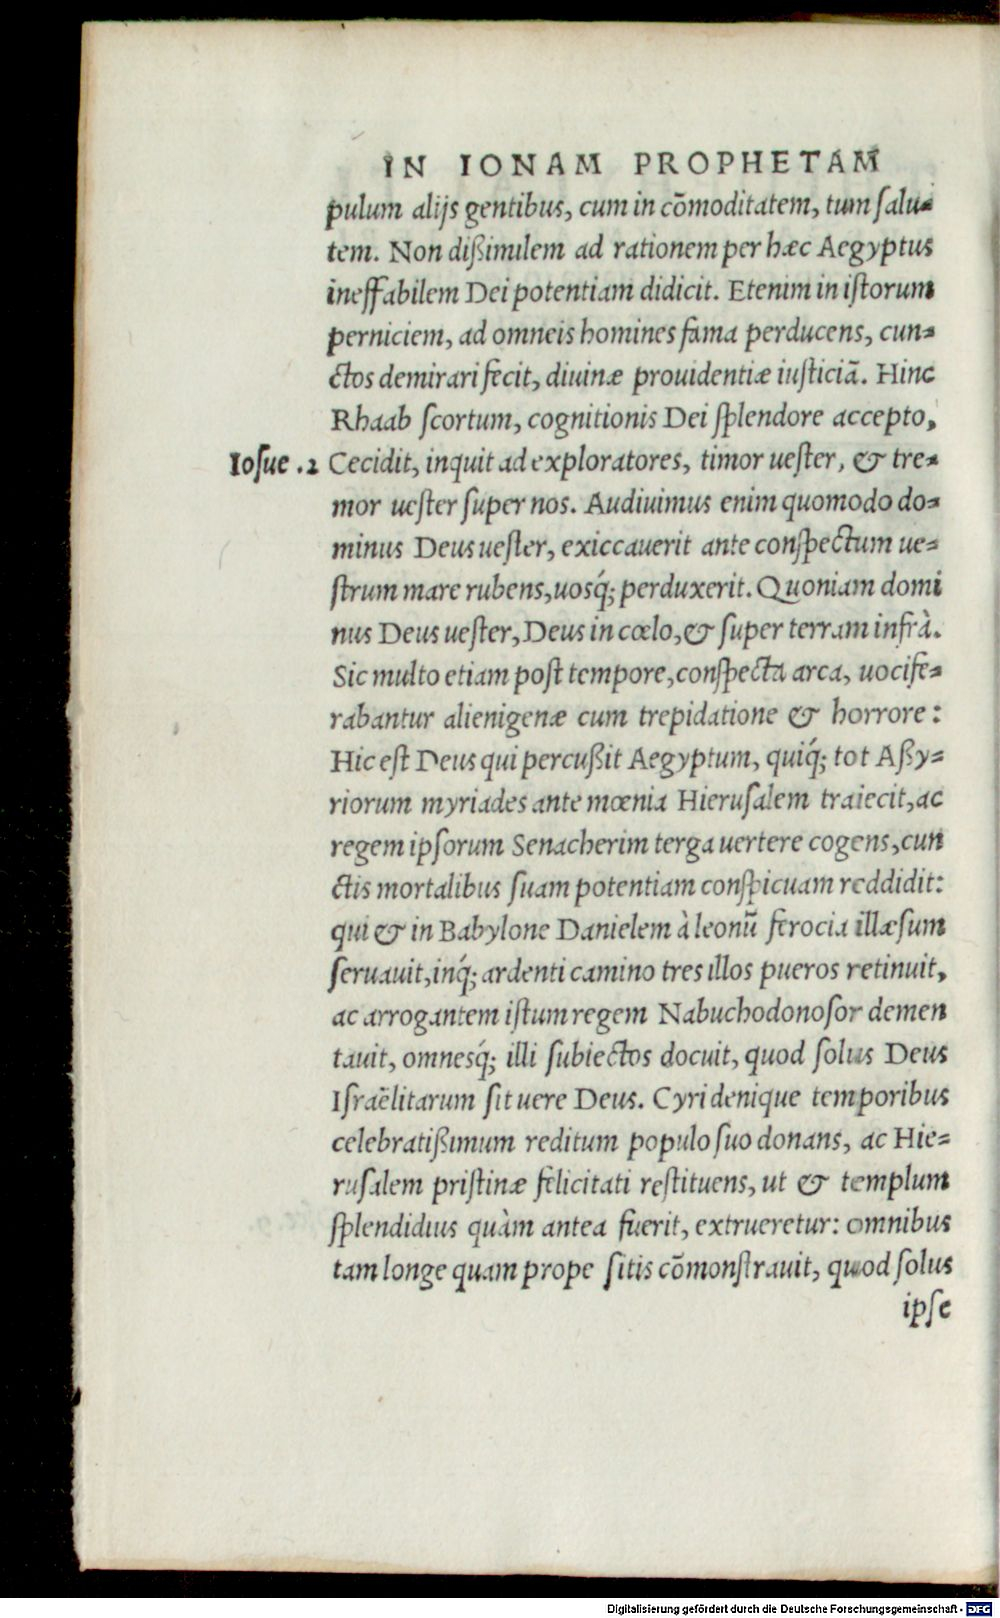 IN IONAM PROPHETAM
pulum alijs gentibus, cum in cõmoditatem, tum ſalu-
tem. Non dißimilem ad rationem per hæc Aegyptus
ineffabilem Dei potentiam didicit. Etenim in iſtorum
perniciem, ad omneis homines fama perducens, cun-
ctos demirari fecit, diuinæ prouidentiæ iuſticiã. Hinc
Rhaab ſcortum, cognitionis Dei ſplendore accepto,
Ioſue .2 Cecidit, inquit ad exploratores, timor ueſter, & tre-
mor ueſter ſuper nos. Audiuimus enim quomodo do-
minus Deus ueſter, exiccauerit ante conſpectum ue-
ſtrum mare rubens, uosq́; perduxerit. Quoniam domi
nus Deus ueſter, Deus in cœlo, & ſuper terram infrà.
Sic multo etiam poſt tempore, conſpecta arca, uocife-
rabantur alienigenæ cum trepidatione & horrore:
Hic eſt Deus qui percußit Aegyptum, quiq́; tot Aßy-
riorum myriades ante mœnia Hieruſalem traiecit, ac
regem ipſorum Senacherim terga uertere cogens, cun
ctis mortalibus ſuam potentiam conſpicuam reddidit:
qui & in Babylone Danielem à leonũ ferocia illæſum
ſeruauit, inq́; ardenti camino tres illos pueros retinuit,
ac arrogantem iſtum regem Nabuchodonoſor demen
tauit, omnesq́; illi ſubiectos docuit, quod ſolus Deus
Iſraëlitarum ſit uere Deus. Cyri denique temporibus
celebratißimum reditum populo ſuo donans, ac Hie-
ruſalem priſtinæ felicitati reſtituens, ut & templum
ſplendidius quàm antea fuerit, extrueretur: omnibus
tam longe quam prope ſitis cõmonſtrauit, quod ſolus
ipſe
Digitalisierung gefördert durch die Deutsche Forschungsgemeinschaft - DFG